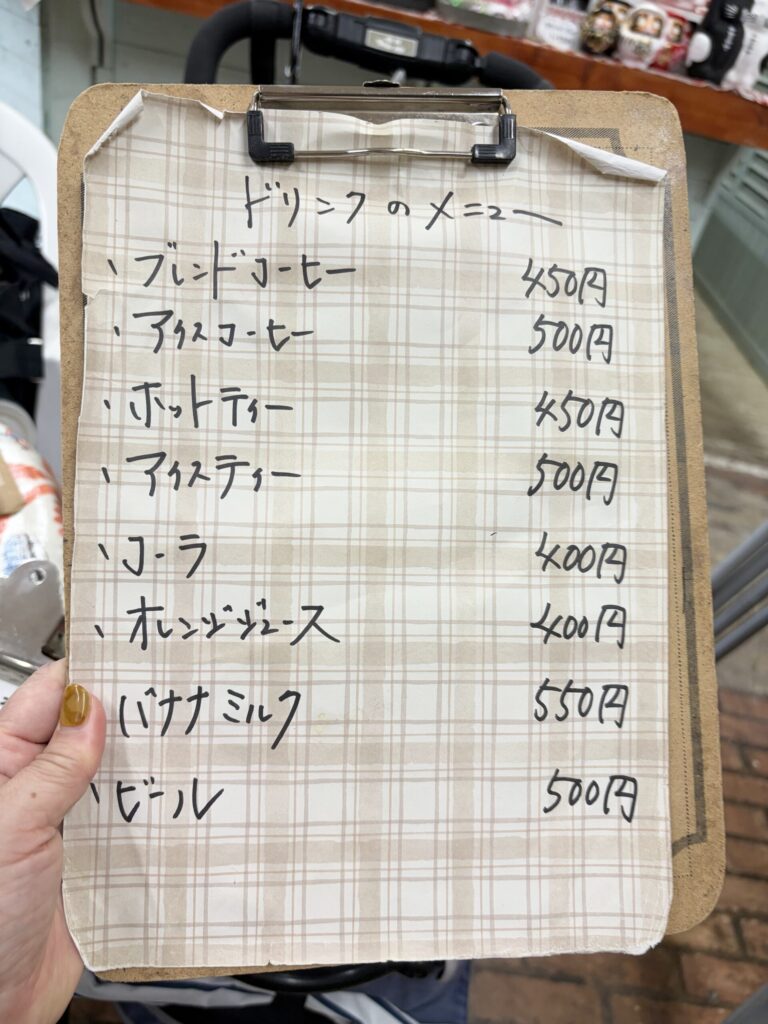 ドリンクのメニュー
、ブレンドコーヒー 450円
、アイスコーヒー 500円
、ホットティー 450円
、アイスティー 500円
、コーラ 400円
、オレンジジュース 400円
バナナミルク 550円
、ビール 500円